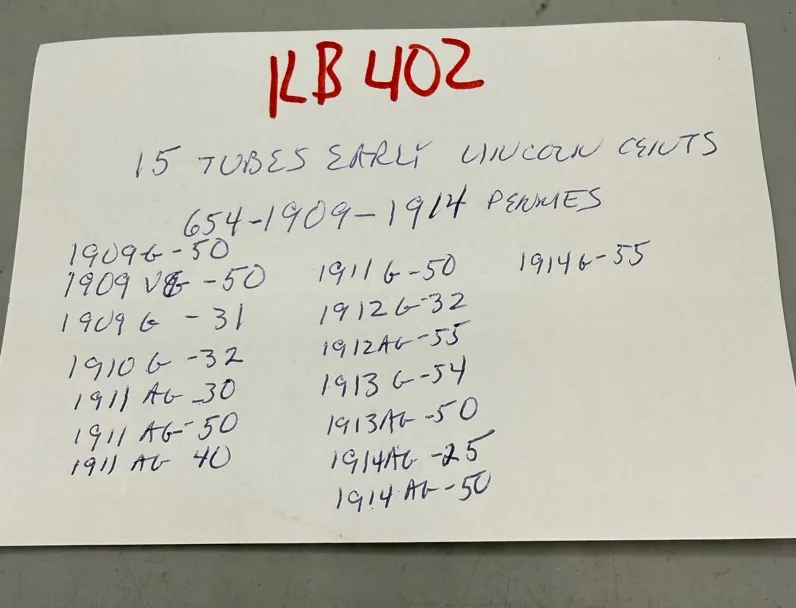 KB 402
15 TUBES EARLY LINCOLN CENTS
654-1909-1914 PENNIES
1909G-50
1909 VG -50
1909 G -31
1910 G -32
1911 AG -30
1911 AG-50
1911 AG 40
1911 G-50
1912G-32
1912AG-55
1913 G-54
1913AG-50
1914AG-25
1914 AG-50
1914G-55